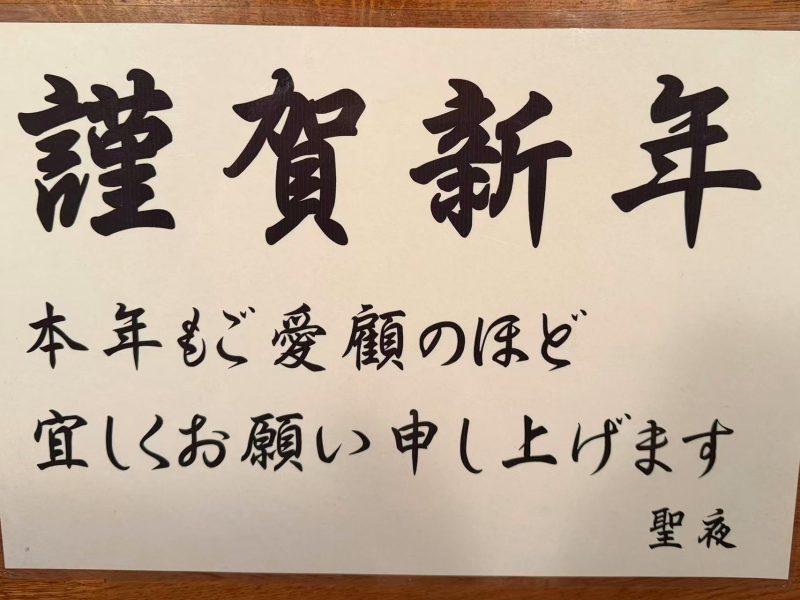 謹賀新年
本年もご愛顧のほど
宜しくお願い申し上げます
聖夜